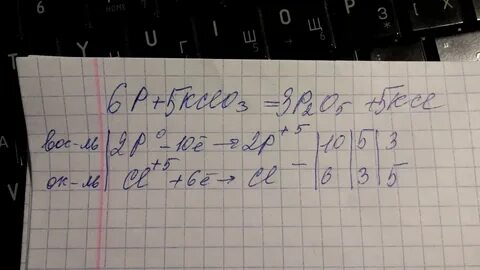 T Y U I O P
Ш Щ З
6P+5KClO₃ = 3P₂O₅ + 5KCl
вос-ль | 2P⁰ - 10ē → 2P⁺⁵ | 10 | 5 | 3
ок-ль | Cl⁺⁵ + 6ē → Cl⁻ | 6 | 3 | 5